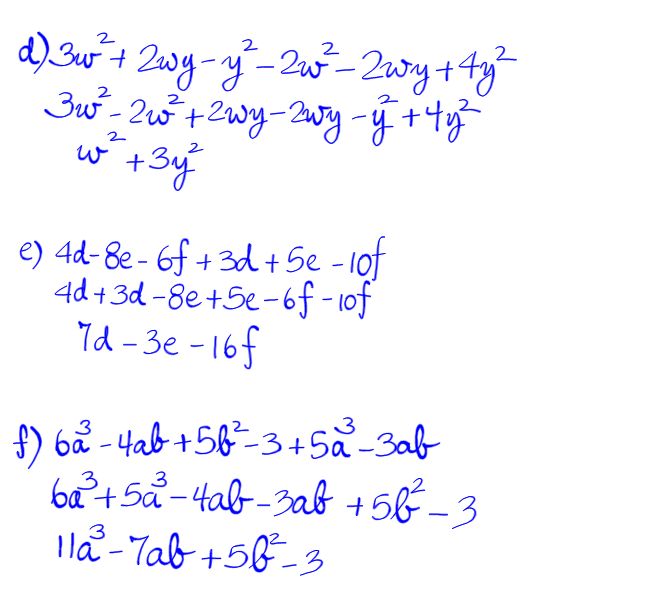 d) 3w² + 2wy - y² - 2w² - 2wy + 4y²
3w² - 2w² + 2wy - 2wy - y² + 4y²
w² + 3y²
e) 4d - 8e - 6f + 3d + 5e - 10f
4d + 3d - 8e + 5e - 6f - 10f
7d - 3e - 16f
f) 6a³ - 4ab + 5b² - 3 + 5a³ - 3ab
6a³ + 5a³ - 4ab - 3ab + 5b² - 3
11a³ - 7ab + 5b² - 3